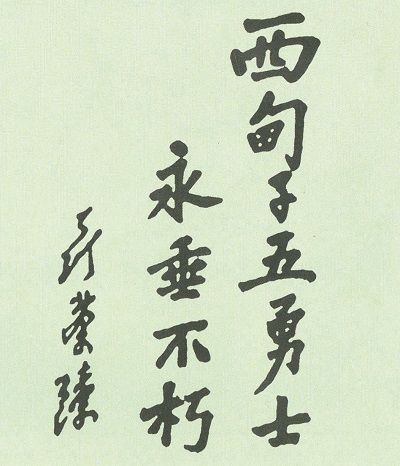 西甸子五勇士
永垂不朽
聂荣臻